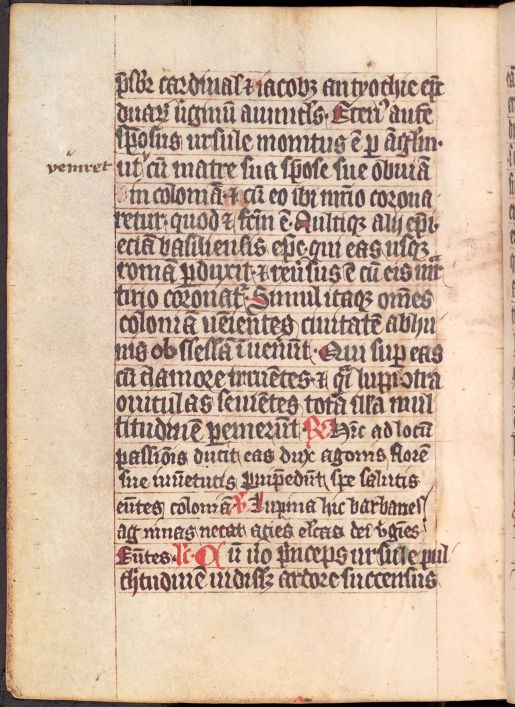 p̄sbr̄ cardinal̄ ⁊ iacobꝫ antyochie ep̄c
duaꝝ v̄giniū auūcl̄s · Eteri9 aut̄e
sponsus ursule monitus ē p angl̄m ·
veniret
ut cū matre sua spōse sue obuiā
in coloniā ⁊ cū eo ibi m̄rio corona
retur · quod ⁊ fc̄m ē · Multiqꝫ alij ep̄i
basiliensis ep̄c qui eas usqꝫ
romā ꝑduxit · ⁊ reu̓sus ē cū eis mr̄
tirio coronat᷑ · Simul itaqꝫ om̄es
coloniā uenientes ciuitatē ab hu
nis obsessā inuen̄ut · Qui sup eas
cū clamore irruētes · ⁊ q̄i lupi ꝯtra
ouiculas seuiētes totā illā mul
titudinē ꝑemerūt · R̄ Hīc ad locū
passiōis ducit eas dux agonis florē
sue iuuētutis spe salutis
eūtes coloniā · V̄ Lupina hic barbaries
agninas necat acies elcas dei v̓gies
Eūtes · Lc̄ · Cū uō p̄nceps ursule pul
chtudinē uidissꝫ ardore succensus